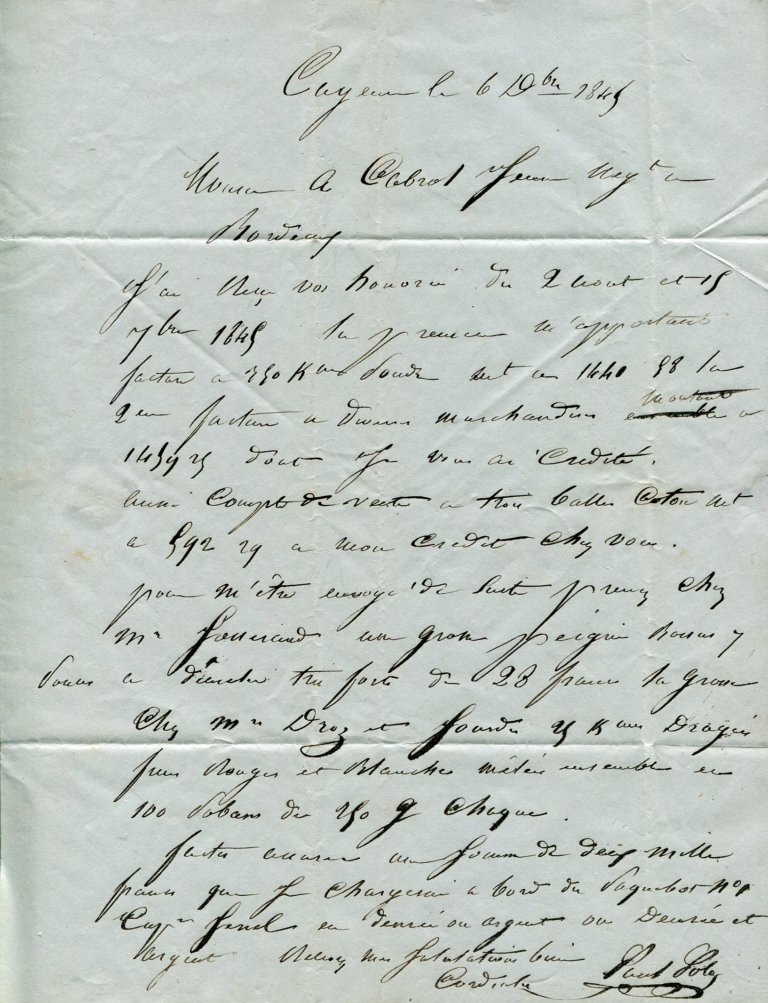 Cayenne le 6 Dbre 1845
Monsieur A Cabrol Jeune Negt a
Bordeaux
J'ai reçu vos honorées du 2 aout et 15
7bre 1845 la premiere m'apportant
facture a 250 K mes poudre net a 1440 58 la
2em facture a Divers marchandises montant a
1459 25 dont je vous ai credité.
aussi Compte de vente a trois balles Coton net
a 592 29 a mon credit chez vous.
pour m'être envoyé de suite prenez chez
mr une grosse peigne
a demeler tres forts de 28 francs la grosse
Chez mrs Droz et 25 K mes Dragées
fines Rouges et Blanches mélées ensemble en
100 de 250 g chaque.
faites assurer une somme de deux mille
francs que je chargerai a bord du Paquebot no 1
Capne en denrée ou argent ou Denrée et
argent Recevez mes salutations bien
Cordiales Paul